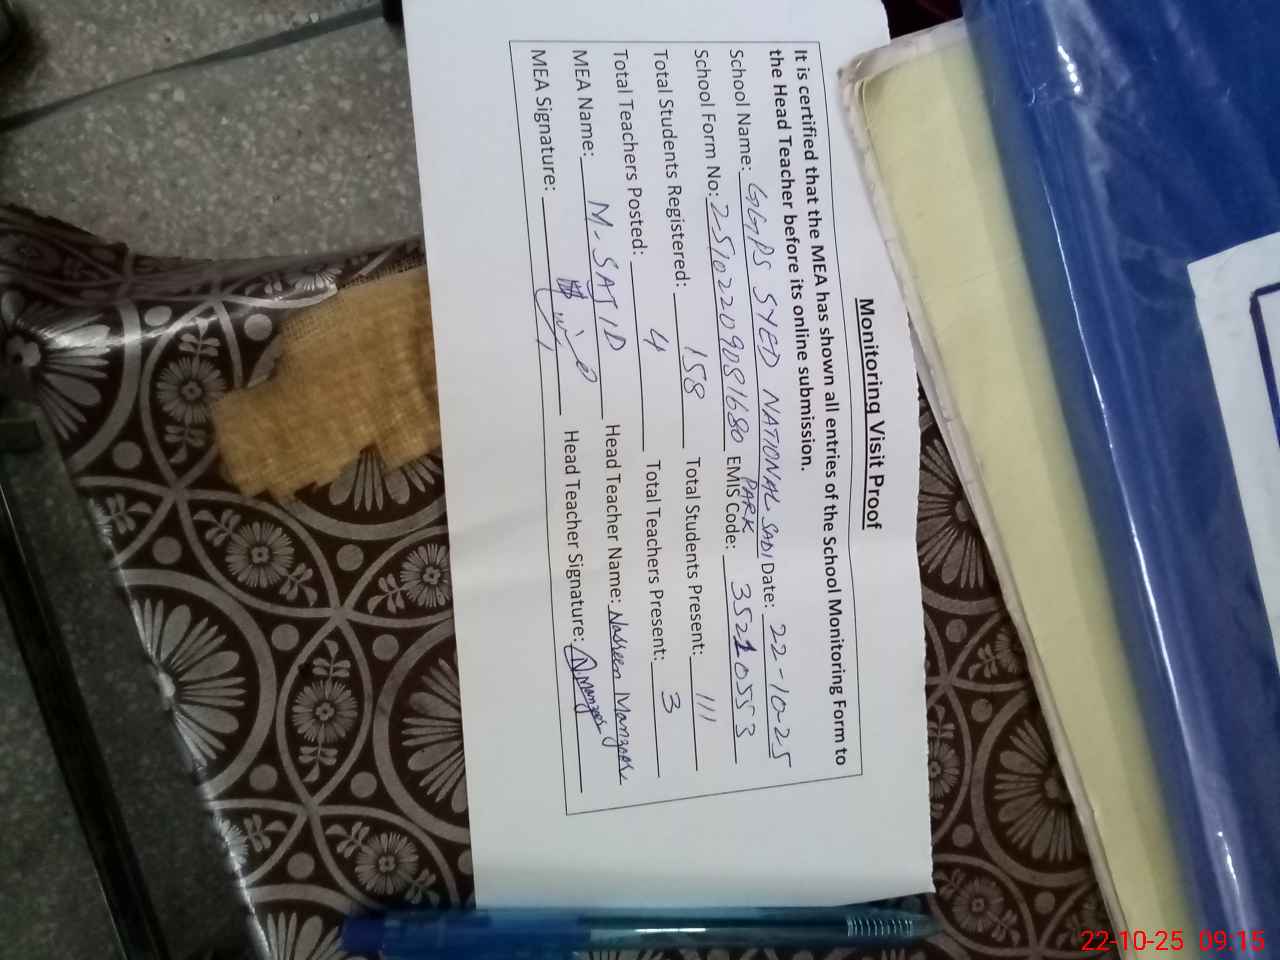 Monitoring Visit Proof
It is certified that the MEA has shown all entries of the School Monitoring Form to
the Head Teacher before its online submission.
School Name: GGPS SYED NATIONAL SADI PARK Date: 22-10-25
School Form No: 25102209081680 EMIS Code: 35210553
Total Students Registered: 158 Total Students Present: 111
Total Teachers Posted: 4 Total Teachers Present: 3
MEA Name: M. SAJID Head Teacher Name: Nasreen Manzoor
MEA Signature: Head Teacher Signature: N Manzoor
22-10-25 09:15